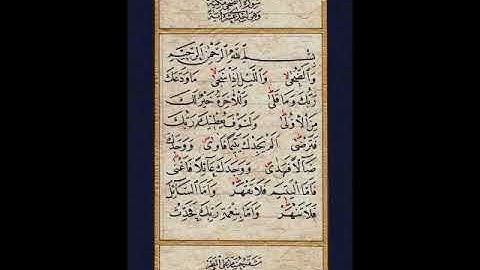 سورة الضحى مكية
وهي احدى عشرة اية
بِسْمِ اللهِ الرَّحْمٰنِ الرَّحِيمِ
وَالضُّحٰى وَاللَّيْلِ اِذَا سَجٰى مَا وَدَّعَكَ
رَبُّكَ وَمَا قَلٰى وَلَلْاٰخِرَةُ خَيْرٌ لَكَ
مِنَ الْاُولٰى وَلَسَوْفَ يُعْطِيكَ رَبُّكَ
فَتَرْضٰى اَلَمْ يَجِدْكَ يَتِيمًا فَاٰوٰى وَوَجَدَكَ
ضَالًّا فَهَدٰى وَوَجَدَكَ عَائِلًا فَاَغْنٰى
فَاَمَّا الْيَتِيمَ فَلَا تَقْهَرْ وَاَمَّا السَّائِلَ
فَلَا تَنْهَرْ وَاَمَّا بِنِعْمَةِ رَبِّكَ فَحَدِّثْ